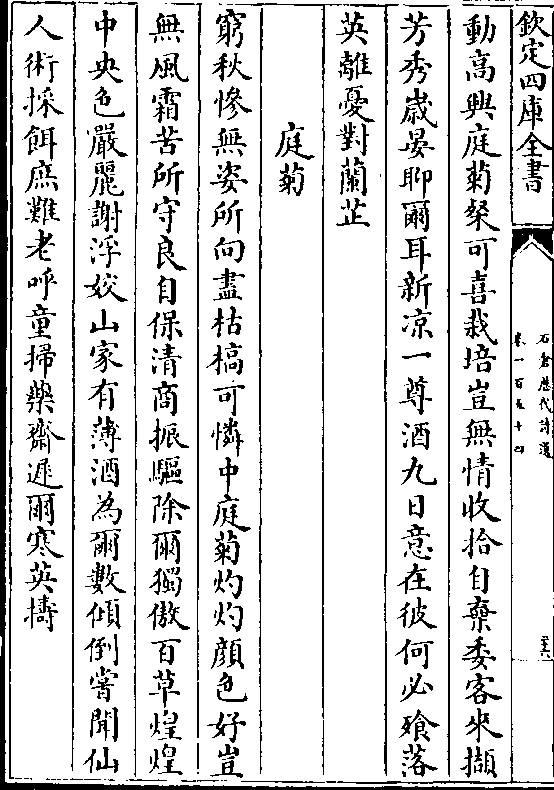 欽定四庫全書
石倉歷代詩選
卷一百五十四
動高興庭菊粲可喜栽培豈無情收拾自棄委客來擷
芳秀歲晏聊爾耳新凉一尊酒九日意在彼何必飱落
英離憂對蘭芷
庭菊
窮秋慘無姿所向盡枯槁可憐中庭菊灼灼顔色好豈
無風霜苦所守良自保清商振驅除爾獨傲百草煌煌
中央色嚴麗謝浮姣山家有薄酒為爾數傾倒嘗聞仙
人術採餌庶難老呼童掃藥齋遲爾寒英擣